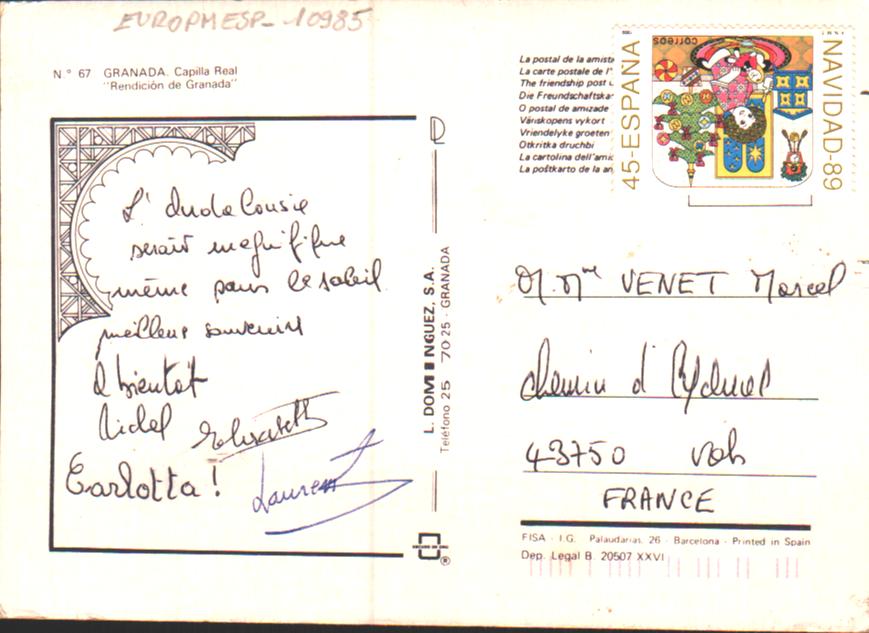 EUROPMESP-10985
N.° 67 GRANADA. Capilla Real
"Rendición de Granada"
L'Andalousie
serait magnifique
même sans le soleil
meilleurs souvenirs
à bientôt
Michel Elisabeth
Carlotta !
Laurent
L. DOMINGUEZ, S.A.
Teléfono 25 70 25 - GRANADA
La postal de la amista
La carte postale de l'
The friendship post
Die Freundschaftska
O postal de amizade
Väriskopens vykort
Vriendelyke groeten
Otkritka druchbi
La cartolina dell'amic
La poŝtkarto de la an
45-ESPAÑA
correos
NAVIDAD-89
M. Mme VENET Marcel
chemin d'
43750 Vals
FRANCE
FISA - I.G. Palaudarias, 26 - Barcelona - Printed in Spain
Dep. Legal B. 20507 XXVI